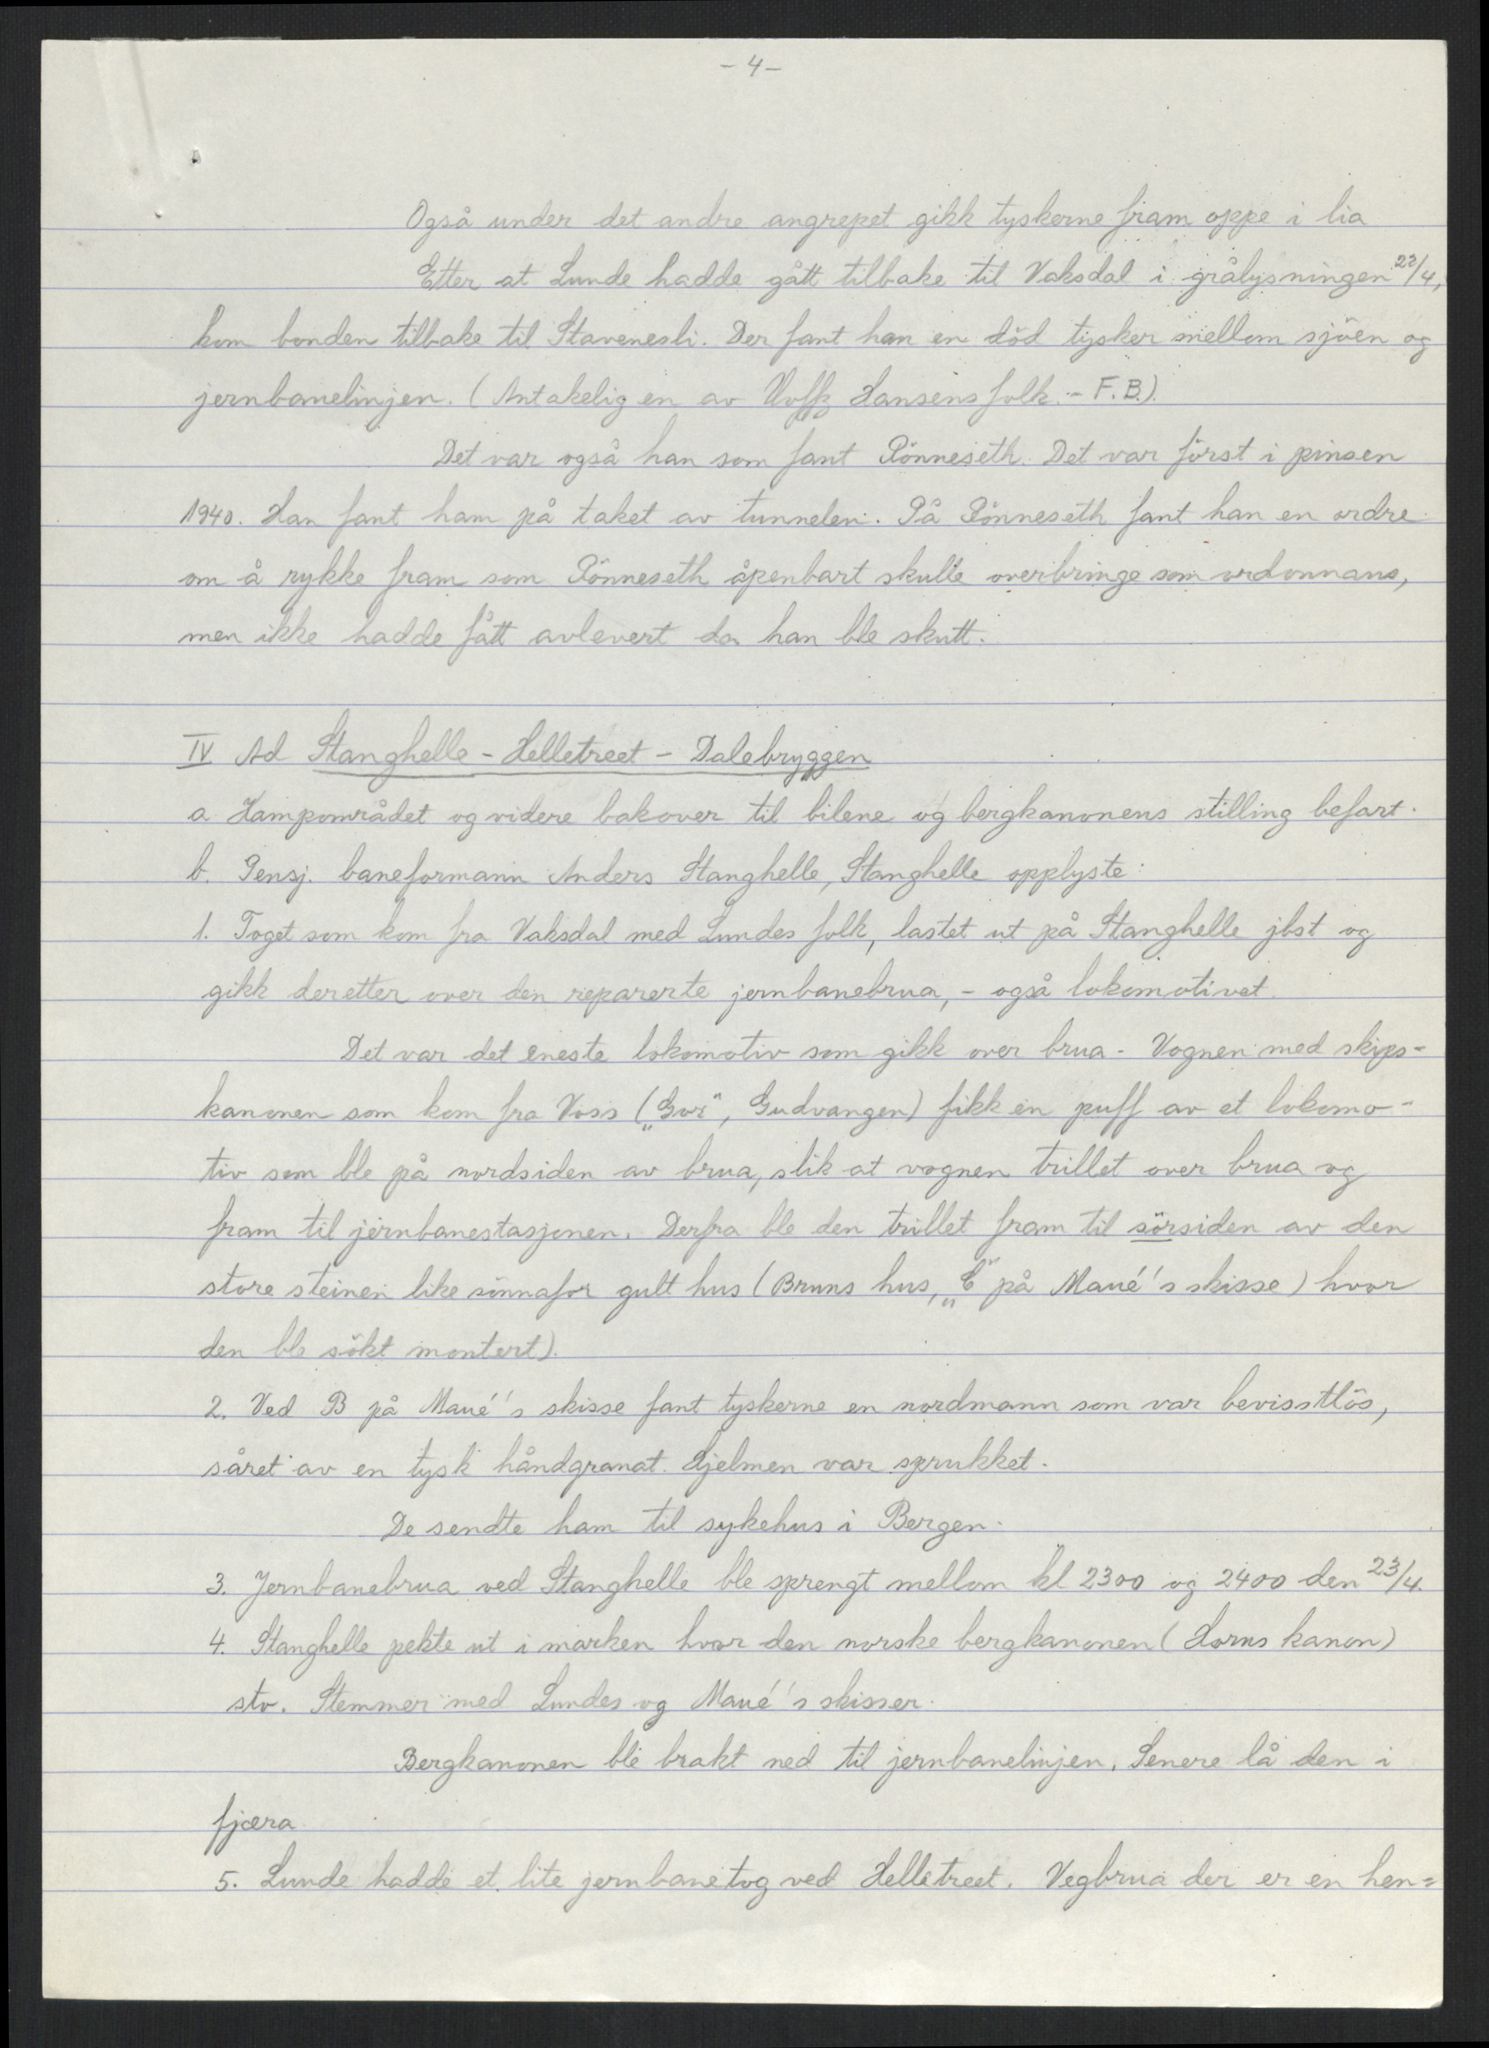 - 4 -
Også under det andre angrepet gikk tyskerne fram oppe i lia
Etter at Lunde hadde gått tilbake til Vaksdal i grålysningen 23/4,
kom bonden tilbake til Stavenesli. Der fant han en död tysker mellom sjöen og
jernbanelinjen. (Antakelig en av Hansens folk. - F.B.).
Det var også han som fant Rönneseth. Det var först i pinsen
1940. Han fant ham på taket av tunnelen. På Rönneseth fant han en ordre
om å rykke fram som Rönneseth åpenbart skulle overbringe som ordonnans,
men ikke hadde fått avlevert da han ble skutt.
IV Ad Stanghelle - Helletreet - Dalebryggen
a. Kampområdet og videre bakover til bilene og bergkanonens stilling befart.
b. Pensj. baneformann Anders Stanghelle, Stanghelle opplyste:
1. Toget som kom fra Vaksdal med Lundes folk, lastet ut på Stanghelle jbst og
gikk deretter over den reparerte jernbanebrua, - også lokomotivet.
Det var det eneste lokomotiv som gikk over brua. Vognen med skips-
kanonen som kom fra Voss („Gor“, Gudvangen) fikk en puff av et lokomo-
tiv som ble på nordsiden av brua, slik at vognen trillet over brua og
fram til jernbanestasjonen. Derfra ble den trillet fram til sörsiden av den
store steinen like sönnafor gult hus (Bruns hus, „E“ på Maué's skisse) hvor
den ble sökt montert).
2. Ved B på Maué's skisse fant tyskerne en nordmann som var bevisstlös,
såret av en tysk håndgranat. Hjelmen var sprukket.
De sendte ham til sykehus i Bergen.
3. Jernbanebrua ved Stanghelle ble sprengt mellom kl 2300 og 2400 den 23/4.
4. Stanghelle pekte ut i marken hvor den norske bergkanonen (Horns kanon)
sto. Stemmer med Lundes og Maué's skisser.
Bergkanonen ble brakt ned til jernbanelinjen. Senere lå den i
fjæra
5. Lunde hadde et lite jernbanetog ved Helletreet. Vegbrua der er en hen=